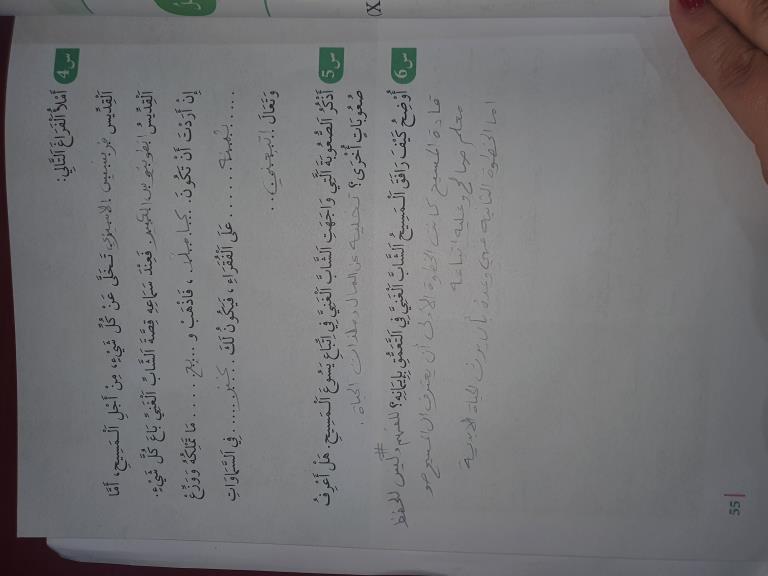 س4 أَمْلَأُ الْفَرَاغَ التَّالِيَ:
الْقِدِّيسُ فرنسيس الاسيزي تَخَلَّى عَنْ كُلِّ شَيْءٍ، مِنْ أَجْلِ الْمَسِيحِ، أَمَّا
الْقِدِّيسُ انطونيوس الكبير. فَعِنْدَ سَمَاعِهِ قِصَّةَ الشَّابِّ الْغَنِيِّ بَاعَ كُلَّ شَيْءٍ.
إِنْ أَرَدْتَ أَنْ تَكُونَ .. كاملا .. ، فَاذْهَبْ وَ ... بع .... مَا تَمْلِكُهُ وَوَزِّعْ
..... ثمنه ....... عَلَى الْفُقَرَاءِ، فَيَكُونُ لَكَ .... كنز ..... فِي السَّمَاوَاتِ
وَتَعَالَ !. اتبعني ...
س5 أَذْكُرُ الصُّعُوبَةَ الَّتِي وَاجَهَتِ الشَّابَّ الْغَنِيَّ فِي اتِّبَاعِ يَسُوعَ الْمَسِيحِ. هَلْ أَعْرِفُ
صُعُوبَاتٍ أُخْرَى؟ تخليه عن المال وملذات الحياة.
س6 أُوَضِّحُ كَيْفَ رَافَقَ الْمَسِيحُ الشَّابَّ الْغَنِيَّ فِي التَّعَمُّقِ بِإِيمَانِهِ؟ للفهم وليس للحفظ #
قادة المسيح كانت الخطوة الأولى أن يعترف ان المسيح هو
معلم صالح وعليه اتباعه
اما الخطوة الثانية هي وعده بأن يرث الحياة الابدية
55
(X